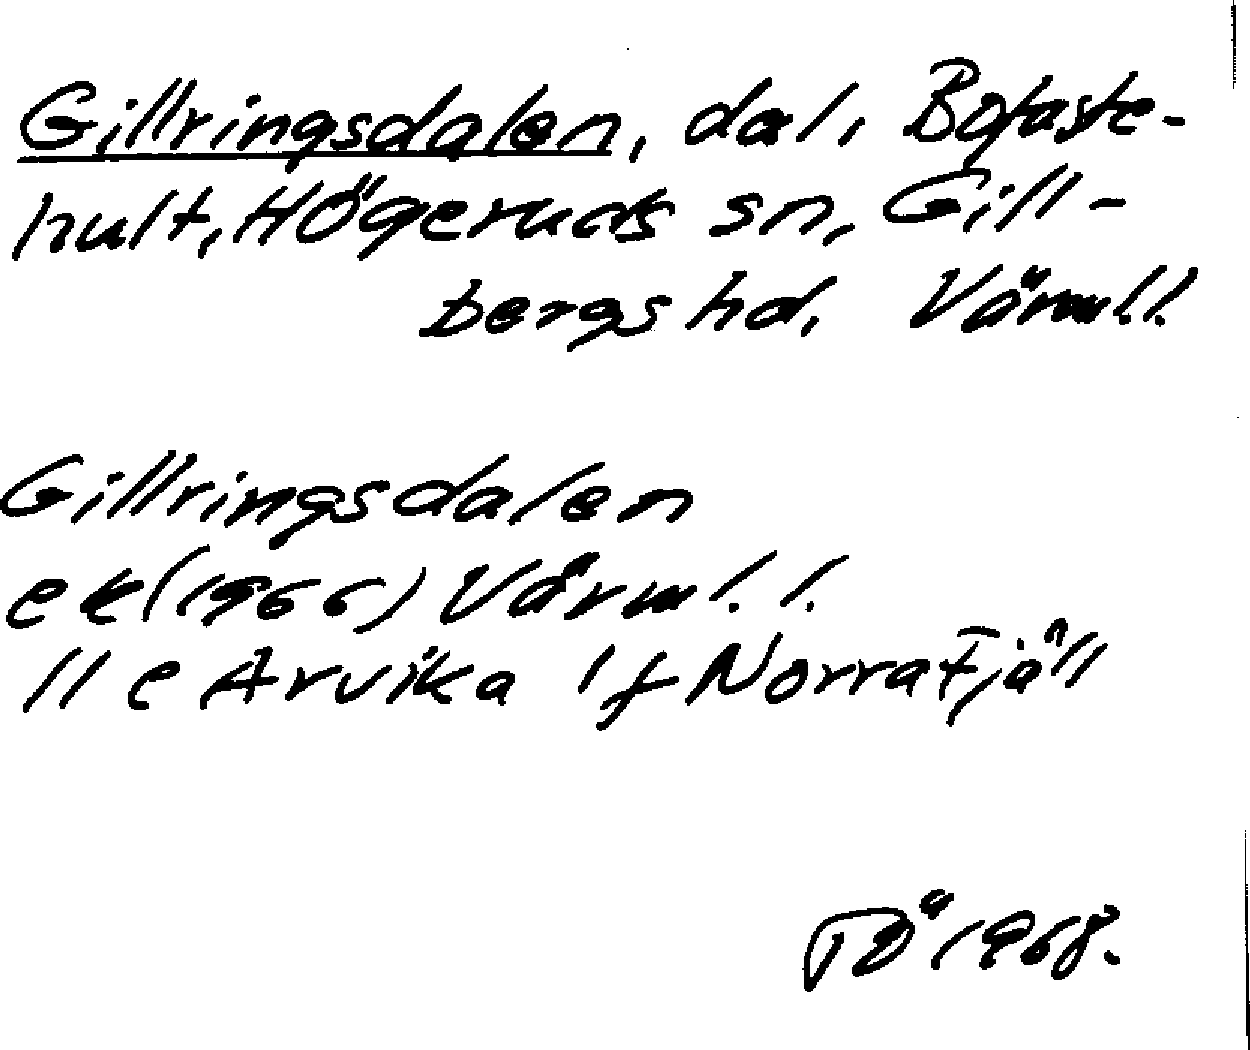 Gillringsdalen, dal, Bofaste-
hult, Högeruds sn, Gill-
bergs hd, Värml.
Gillringsdalen
ek (1966) Värml. l.
11 e Arvika 1 f Norra Fjäll
TÖ 1968.